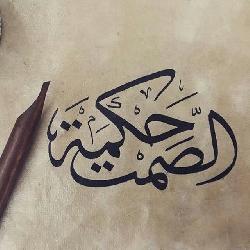 الصَّمت حكمة